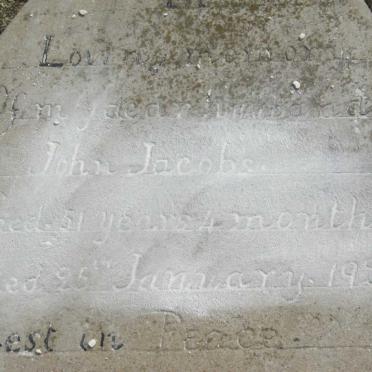 In
Loving memory
Of my dear husband
John Jacobs.
51 years 4 month
25th January. 19
est in Peace.